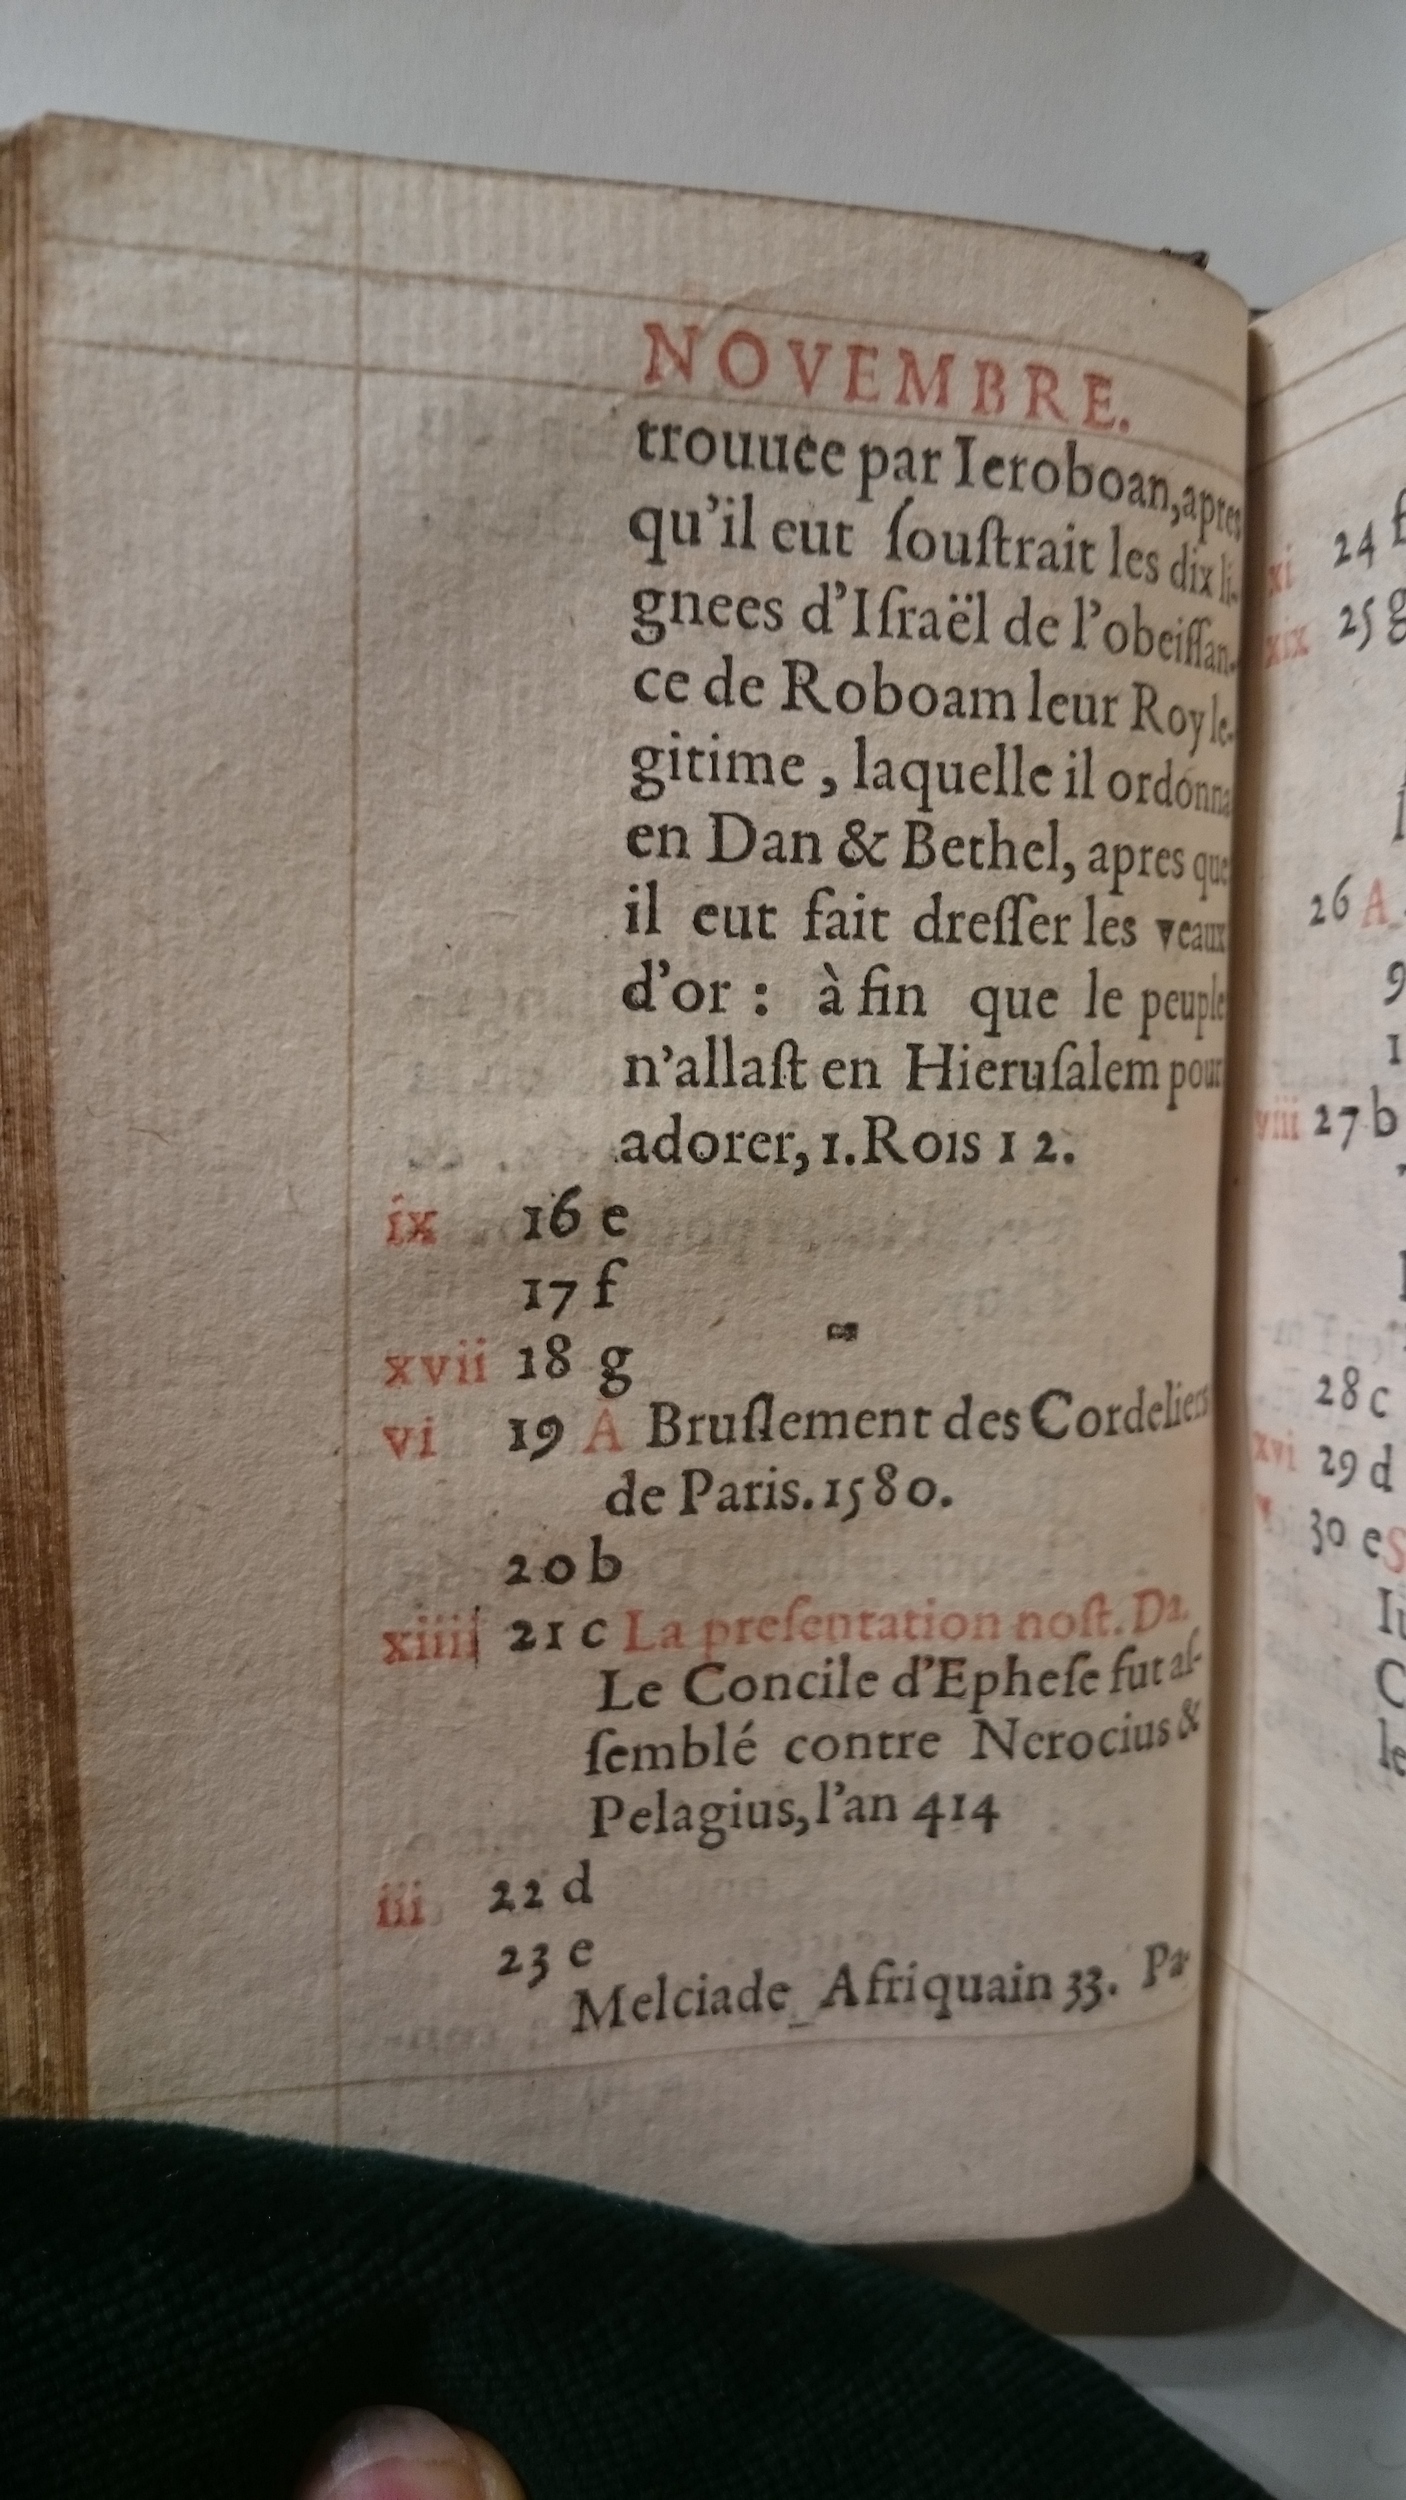 NOVEMBRE.
trouuée par Ieroboan, apres
qu'il eut ſouſtrait les dix li-
gnees d'Iſraël de l'obeiſſan-
ce de Roboam leur Roy le-
gitime , laquelle il ordonna
en Dan & Bethel, apres que
il eut fait dreſſer les veaux
d'or : à fin que le peuple
n'allaſt en Hieruſalem pour
adorer, 1. Rois 1 2.
ix 16 e
17 f
xvii 18 g
vi 19 A Bruſlement des Cordeliers
de Paris. 1580.
20 b
xiiii 21 c La preſentation noſt. Da.
Le Concile d'Epheſe fut aſ-
ſemblé contre Nerocius &
Pelagius, l'an 414
iii 22 d
23 e
Melciade Afriquain 33. Pa-
xi 24 f
xix 25 g
26 A
viii 27 b
28 c
xvi 29 d
30 e